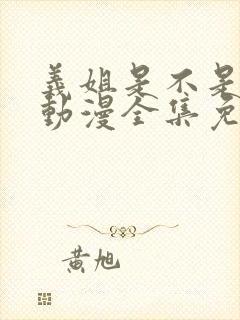 義姐是不是
動漫全集免
黄旭